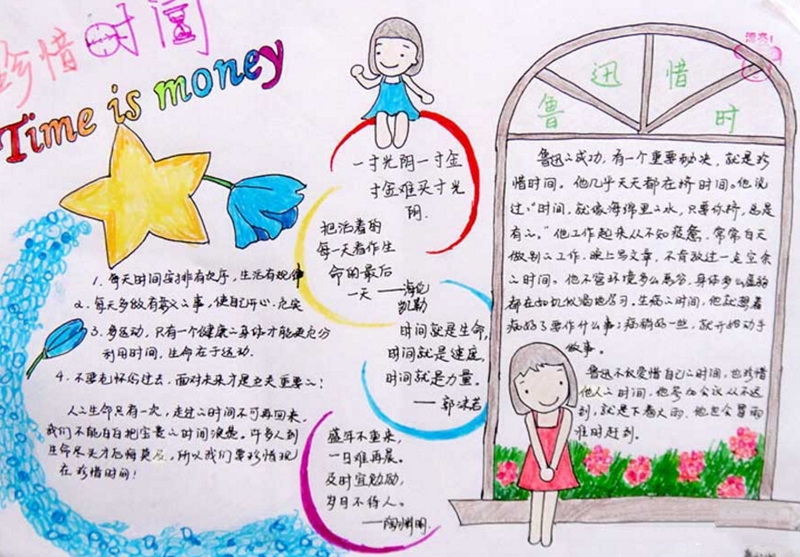 珍惜时间
Time is money
1. 每天时间安排有次序，生活有规律
2. 每天多做有意义之事，使自己开心、充实
3. 多运动，只有一个健康之身体才能更充分
利用时间，生命在于运动.
4. 不要老怀俗过去，面对未来才是至关重要之！
人之生命只有一次，走过之时间不可再回来，
我们不能白白把宝贵之时间浪费。许多人到
生命尽头才后悔莫及，所以我们要珍惜现
在 珍惜时间！
一寸光阴一寸金
寸金难买寸光
阴.
把活着的
每一天看作生
命的最后
一天 ——海伦
凯勒
时间就是生命，
时间就是速度，
时间就是力量。
——郭沫若
盛年不重来，
一日难再晨。
及时宜勉励，
岁月不待人。
——陶渊明
漂亮！
鲁迅惜时
鲁迅之成功，有一个重要秘决，就是珍
惜时间。他几乎天天都在挤时间。他说
过："时间，就像海绵里之水，只要你挤，总是
有之。"他工作起来从不知疲惫，常常白天
做别之工作，晚上写文章，不肯放过一点空余
之时间。他不管环境多么恶劣，身体多么虚弱
都在如饥似渴地学习，生病之时间，他就想着
病好了要作什么事；病稍好一些，就开始动手
做事。
鲁迅不仅爱惜自己之时间，也珍惜
他人之时间，他参加会议从不迟
到，就是下着大雨，他总会冒雨
准时赶到。